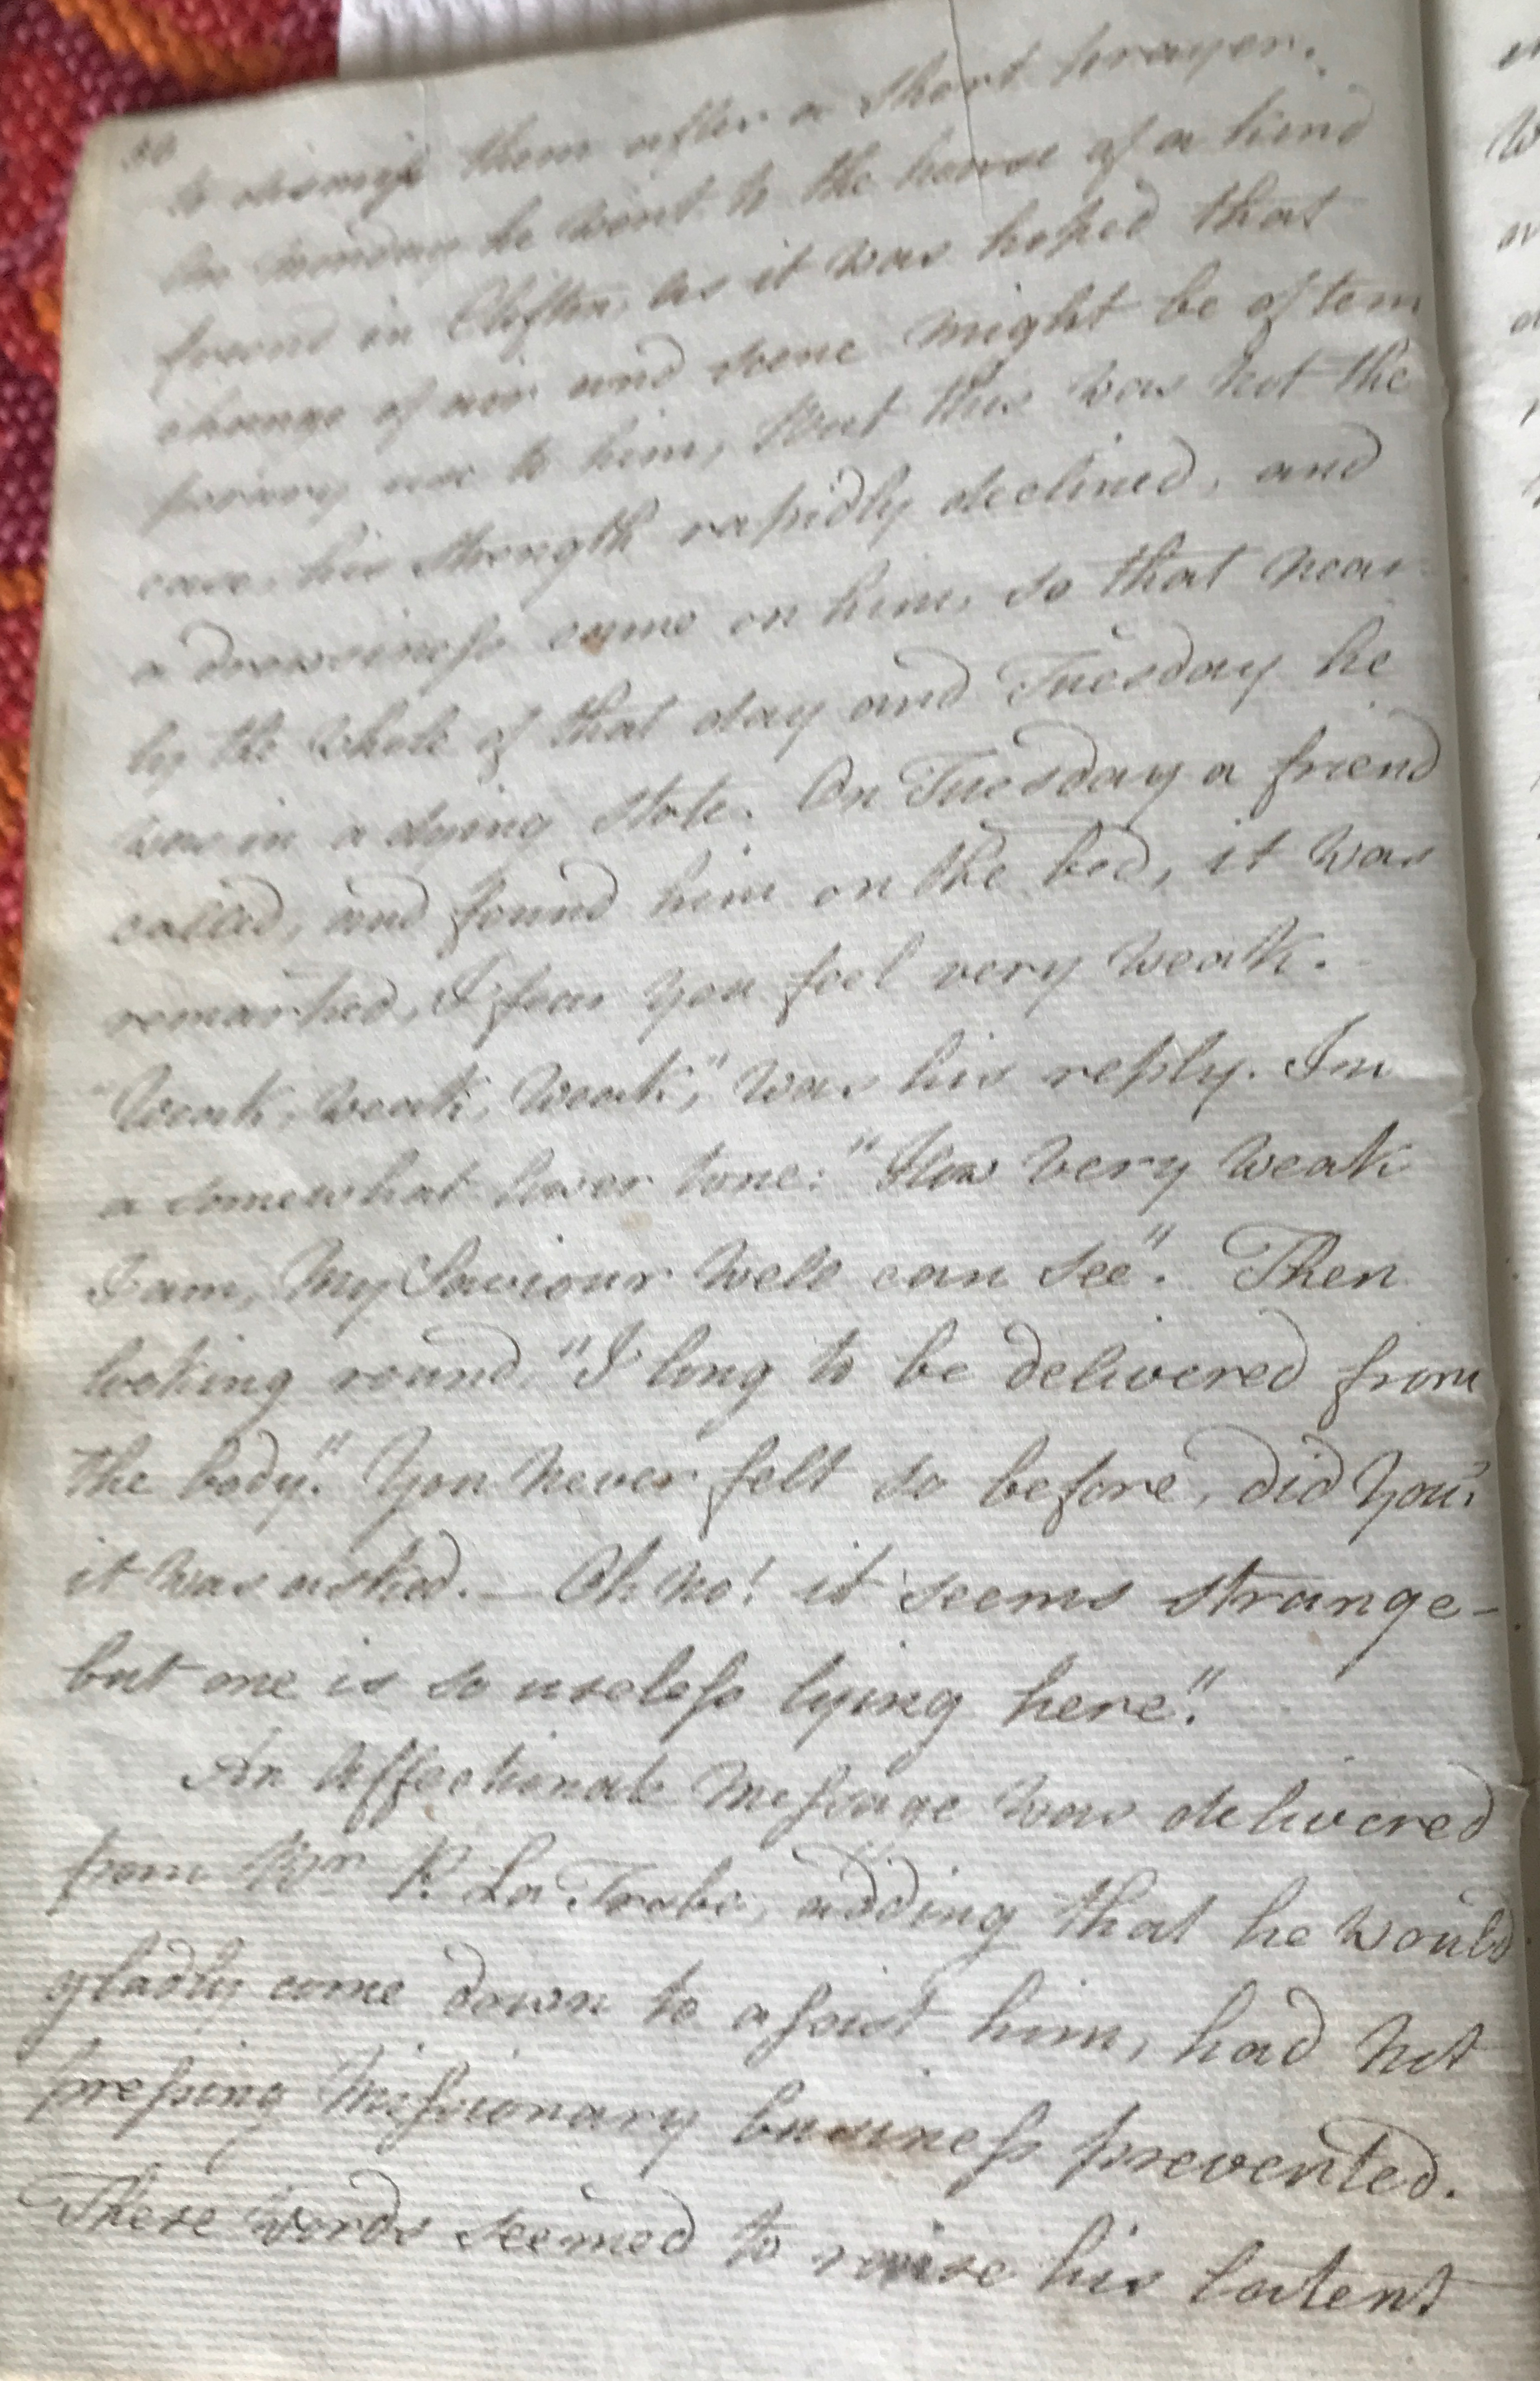 to dismiss them after a short prayer.
On Monday he went to the house of a kind
friend in Clifton, as it was hoped that
change of air and scene might be of tem
porary use to him, But this was not the
case, his strength rapidly declined, and
a drowsiness came on him, so that near
ly the whole of that day and Tuesday he
was in a dying state. On Tuesday a friend
called, and found him on the bed, it was
remarked, I fear you feel very weak.
"Weak, weak, weak," was his reply. In
a somewhat lower tone: "How very weak
I am, My Saviour well can see". Then
looking round, "I long to be delivered from
the body." You never felt so before, did you?
it was asked. — Oh no! it seems strange -
but one is so useless lying here."
An affectionate message was delivered
from P. La Trobe, adding that he would
gladly come down to assist him, had not
pressing Missionary business prevented.
These words seemed to raise his latent